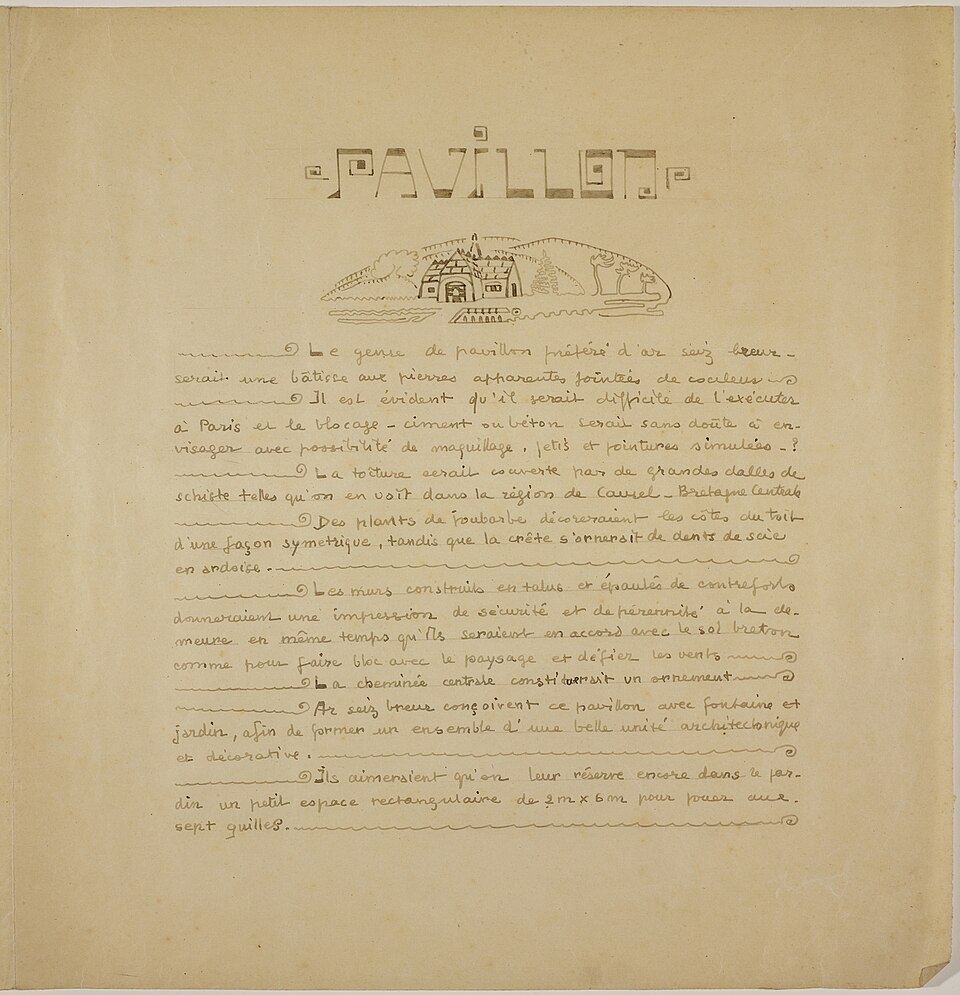 PAVILLON
Le genre de pavillon préféré d'ar seiz breur -
serait une bâtisse aux pierres apparentes jointées de couleur
Il est évident qu'il serait difficile de l'exécuter
à Paris et le blocage - ciment ou béton serait sans doûte à en-
visager avec possibilité de maquillage, jetis et jointures simulées - ?
La toiture serait couverte par de grandes dalles de
schiste telles qu'on en voit dans la région de Caurel - Bretagne Centrale
Des plants de joubarbe décoreraient les côtes du toit
d'une façon symetrique, tandis que la crête s'ornerait de dents de scie
en ardoise.
Les murs construits en talus et épaulés de contreforts
donneraient une impression de sécurité et de pérennité à la de-
meure en même temps qu'ils seraient en accord avec le sol breton
comme pour faire bloc avec le paysage et défier les vents
La cheminée centrale constituerait un ornement
Ar seiz breur conçoivent ce pavillon avec fontaine et
jardin, afin de former un ensemble d'une belle unité architectonique
et décorative.
Ils aimeraient qu'on leur réserve encore dans le jar-
din un petit espace rectangulaire de 2m x 6m pour jouer aux
sept quilles.